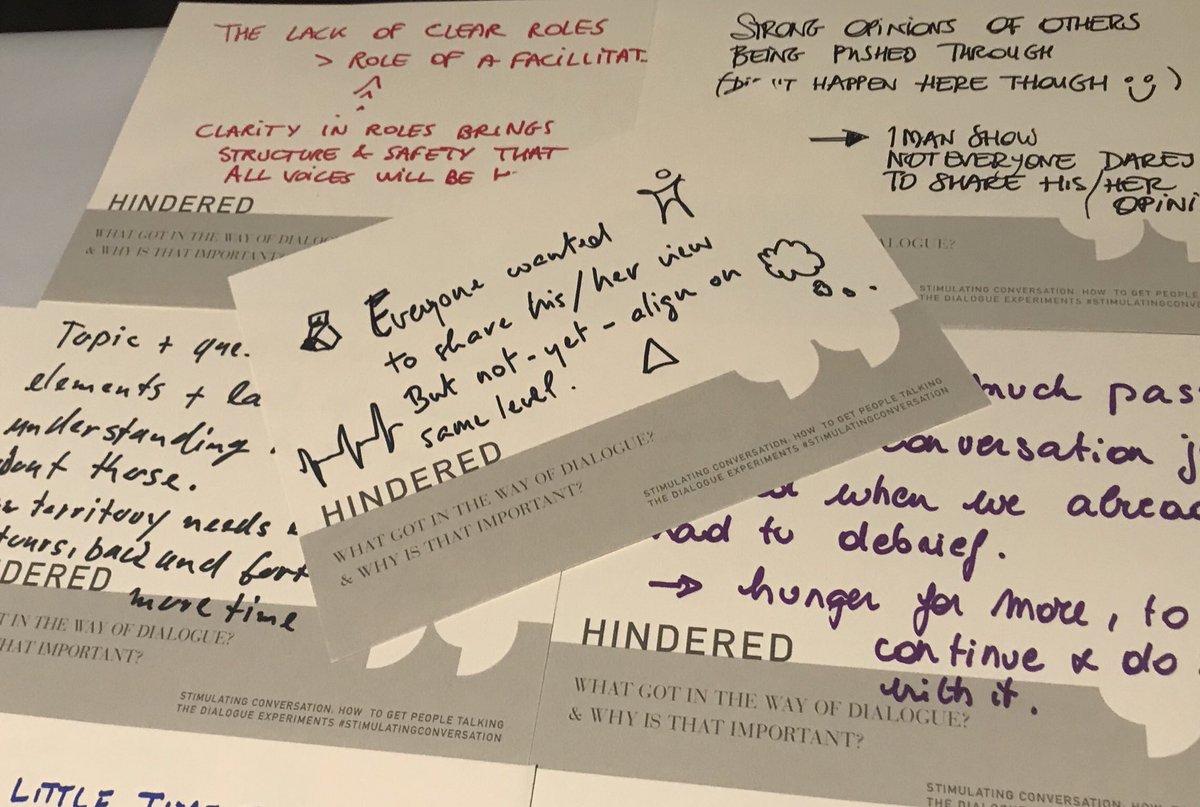 THE LACK OF CLEAR ROLES
> ROLE OF A FACILLITAT
CLARITY IN ROLES BRINGS
STRUCTURE & SAFETY THAT
ALL VOICES WILL BE
HINDERED
WHAT GOT IN THE WAY OF DIALOG
& WHY IS THAT IMPORTANT?
STRONG OPINIONS OF OTHERS
BEING PUSHED THROUGH
HAPPEN HERE THOUGH
1 MAN SHOW
NOT EVERYONE DARES
TO SHARE HIS/HER
OPINI
ALOGUE?
STIMULATING CONVERSATION: HOW TO GET PEOPLE
THE DIALOGUE EXPERIMENTS #STIMULATINGCONVE
Everyone wanted
to share his/her view
But not-yet-align on
same level.
HINDERED
WHAT GOT IN THE WAY OF DIALOGUE?
& WHY IS THAT IMPORTANT?
STIMULATING CONVERSATION: HOW TO GET PEOPLE TALKING
THE DIALOGUE EXPERIMENTS #STIMULATINGCONVERSATION
Topic + que.
elements + la
understanding.
those.
territory needs
back and fort
more time
DERED
T IN THE WAY OF DIALOGUE?
HAT IMPORTANT?
STIMULATING CONVERSATION: HOW TO GET PEOPLE TALKING
THE DIALOGUE EXPERIMENTS #STIMULATINGCONVERSATION
much pas
conversation j
when we alrea
had to debrief.
→ hunger for more, to
continue & do
with it.
HINDERED
WHAT GOT IN THE WAY OF DIALOGUE?
& WHY IS THAT IMPORTANT?
STIMULATING CONVERSATION: HOW
THE DIALOGUE EXPERIMENTS
LITTLE TIME